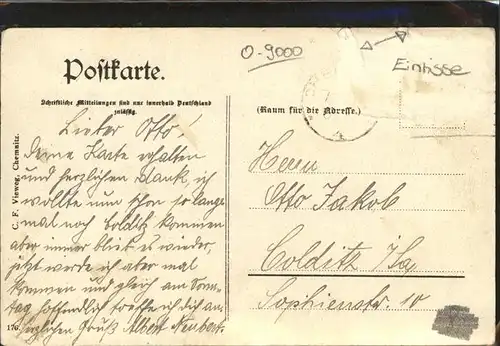 O-9000
Einrisse
Postkarte.
Schriftliche Mitteilungen sind nur innerhalb Deutschland
zulässig.
(Raum für die Adresse.)
C. F. Vieweg, Chemnitz.
Lieber Otto!
Deine Karte erhalten
und herzlichen Dank, ich
wollte nun schon so lange
mal nach Colditz kommen
aber immer blieb es wieder,
jetzt werde ich aber mal
kommen und gleich am Sonn-
tag, hoffentlich treffe ich dich an.
Gruß Albert Neubert
Herrn
Otto Jakob
Colditz i/Sa
Sophienstr. 10